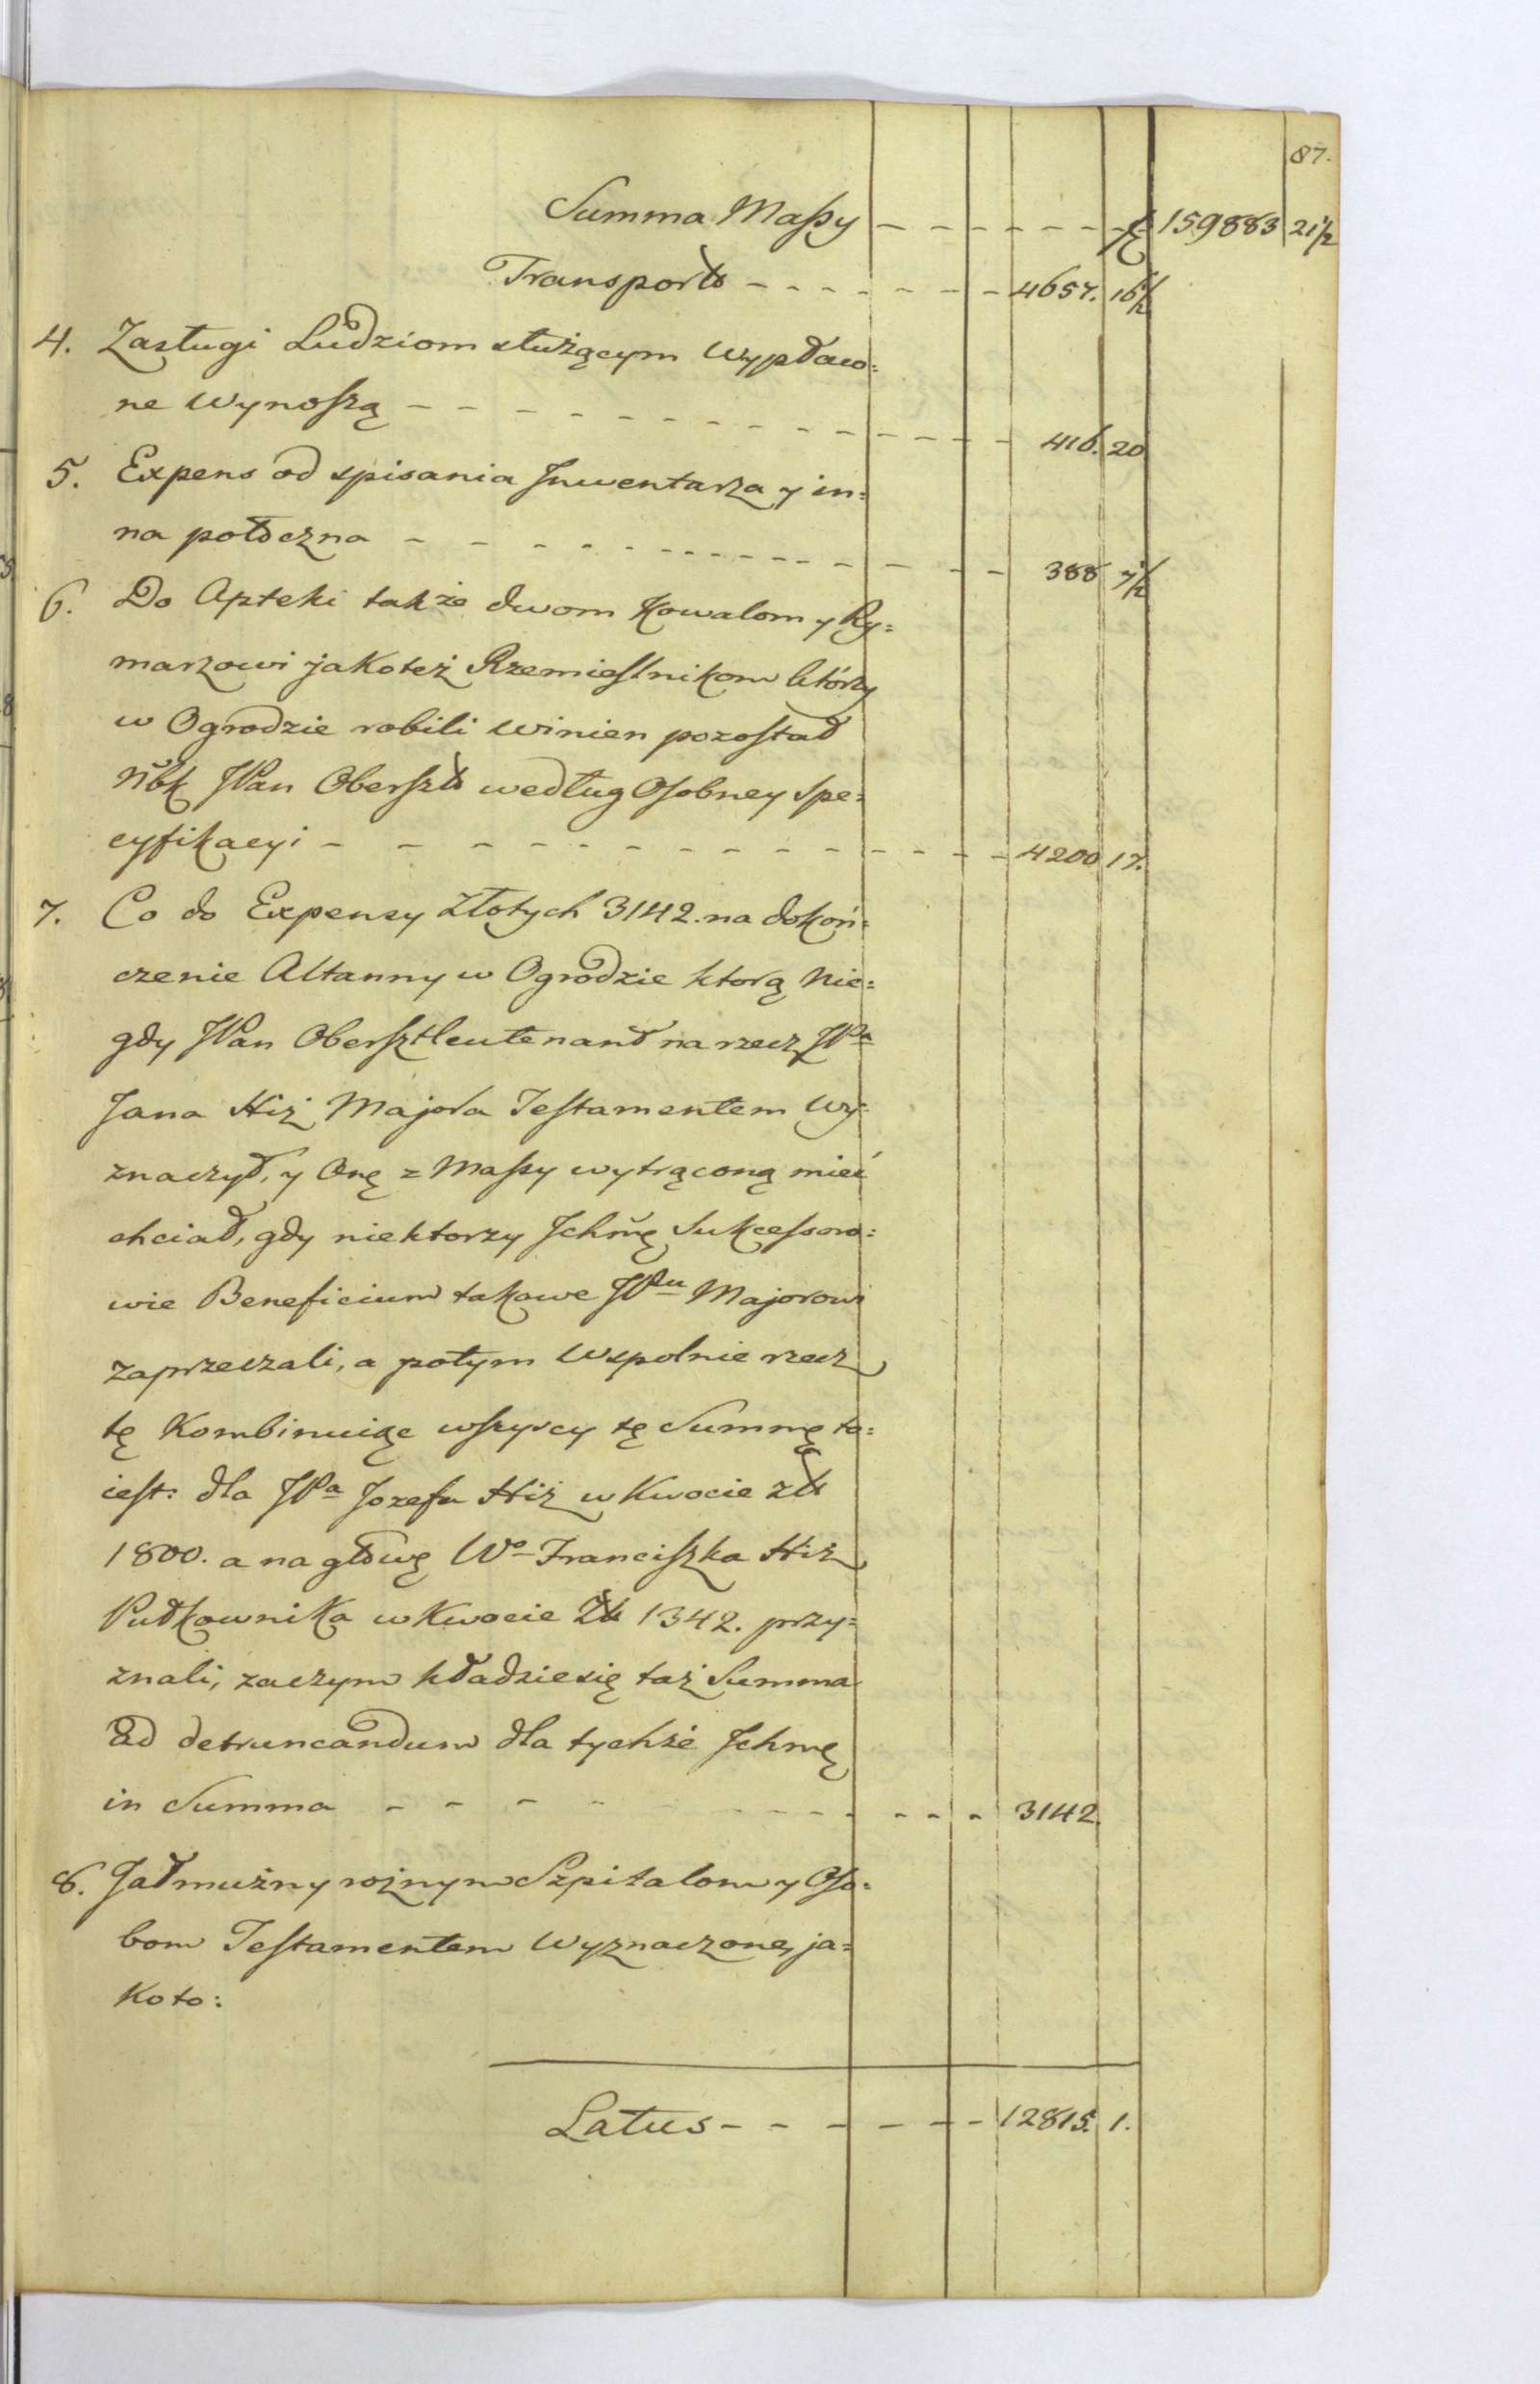 87.
Summa Massy - - - - - - - 159883 21½
Transport - - - - - - - 4657. 16½
4. Zasługi Ludziom służącym wypłaco=
ne wynoszą - - - - - - - 416. 20
5. Expens od spisania Inwentarza y in=
na potoczna - - - - - - - 388 7½
6. Do Apteki także dwom Kowalom y Ry=
marzowi jakoteż Rzemieslnikom którzy
w Ogrodzie robili winien pozostał
Nbk JPan Oberszt według Osobney Spe=
cyfikacyi - - - - - - - 4200 17.
7. Co do Expensy Złotych 3142. na dokoń=
czenie Altanny w Ogrodzie ktorą Nie=
gdy JPan Obersztleutenant na rzecz JPa
Jana Hiż Majora Testamentem wy=
znaczył, y Onę z Massy wytrąconą mieć
chciał, gdy niektorzy Ichmę Sukcessoro=
wie Beneficium takowe JPau Majorowi
zaprzeczali, a potym wspolnie rzecz
tę Kombinuiąc wszyscy tę Summę to=
iest: dla JPa Jozefa Hiż w Kwocie zł
1800. a na głowę Wo Franciszka Hiż
Pułkownika w Kwocie Zł 1342. przy=
znali, zaczym kładzie się taż Summa
ad detruncandum dla tychże Ichmę
in Summa - - - - - - - 3142.
8. Jałmużny rożnym Szpitalom y Oso=
bom Testamentem wyznaczone, ja=
koto:
Latus - - - - - - 12815. 1.